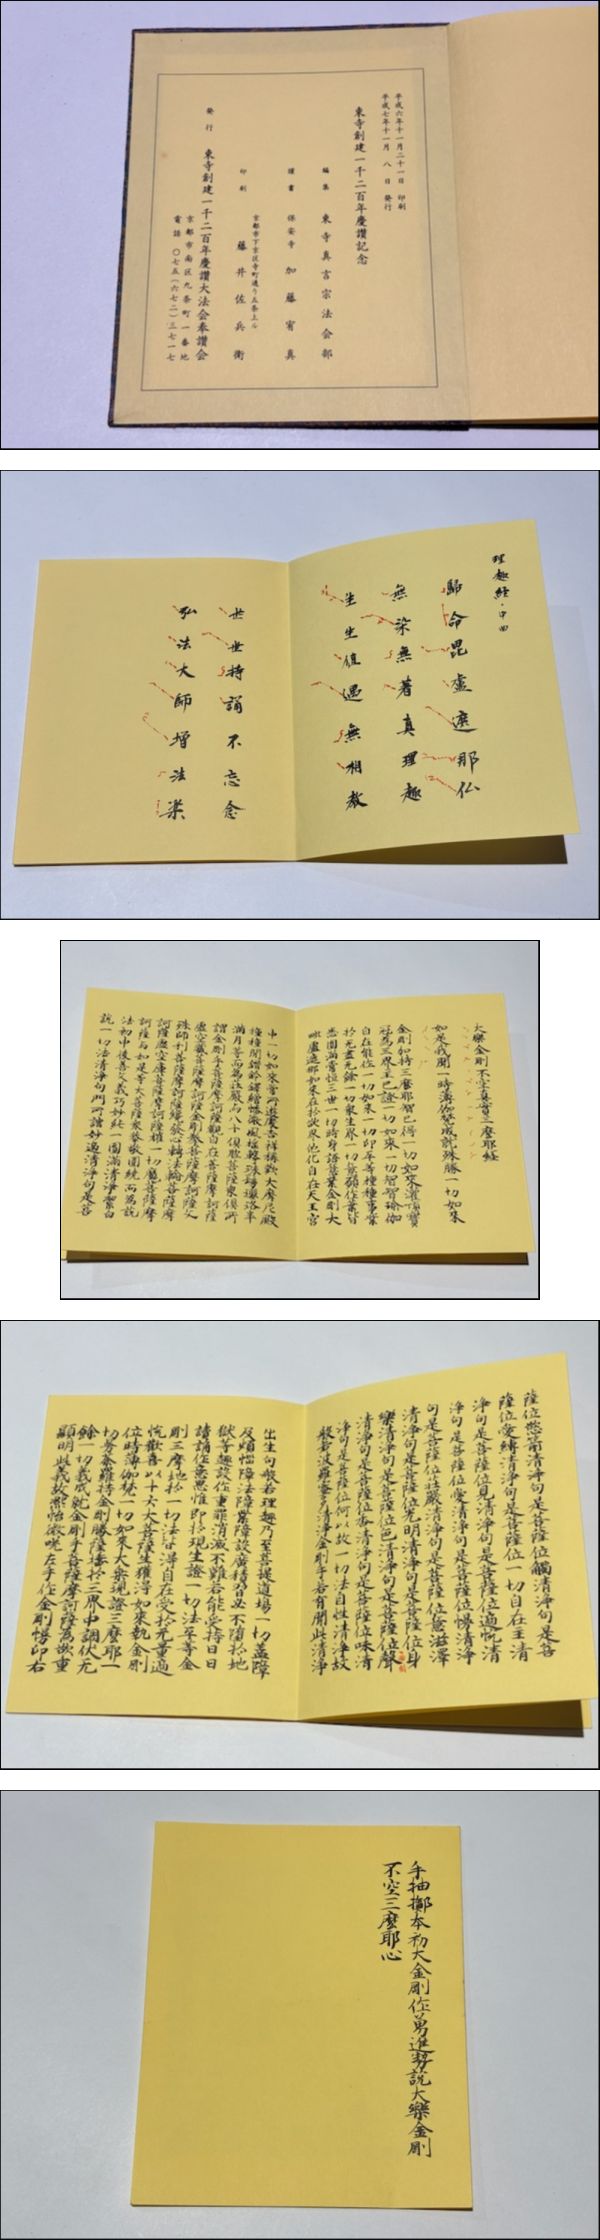 平成六年十一月二十一日 印刷
平成七年十一月 八 日 発行
東寺創建一千二百年慶讃記念
編集 東寺真言宗法会部
謹書 保安寺 加藤宥真
京都市下京区寺町通り五条上ル
印刷 藤井佐兵衛
発行 東寺創建一千二百年慶讃大法会奉讃会
京都市南区九条町一番地
電話 〇七五(六七二)三七一七
理趣経・中曲
歸命毘盧遮那仏
無染無著真理趣
生生值遇無相教
世世持誦不忘念
弘法大師増法楽
大樂金剛不空真實三麼耶経
如是我聞一時薄伽梵成就殊勝一切如来
金剛加持三麼耶智已得一切如来灌頂寶
冠為三界主已證一切如来一切智智瑜伽
自在能作一切如来一切印平等種種事業
於无盡无餘一切衆生界一切意願作業皆
悉圓滿常恒三世一切時身語意業金剛大
毗盧遮那如来在於欲界他化自在天王宮
中一切如来常所遊處吉祥稱歎大摩尼殿
種種間錯鈴鐸繒幡微風揺撃珠鬘瓔珞半
満月等而為莊嚴与八十俱胝菩薩衆俱所
謂金剛手菩薩摩訶薩觀自在菩薩摩訶薩
虚空藏菩薩摩訶薩金剛拳菩薩摩訶薩文
殊師利菩薩摩訶薩纔發心轉法輪菩薩摩
訶薩虚空庫菩薩摩訶薩摧一切魔菩薩摩
訶薩与如是等大菩薩衆恭敬圍繞而為説
法初中後善文義巧妙純一圓滿清淨潔白
説一切法清淨句門所謂妙適清淨句是菩
薩位慾箭清淨句是菩薩位觸清淨句是菩
薩位愛縛清淨句是菩薩位一切自在主清
淨句是菩薩位見清淨句是菩薩位適悦清
淨句是菩薩位愛清淨句是菩薩位慢清淨
句是菩薩位莊嚴清淨句是菩薩位意滋澤
清淨句是菩薩位光明清淨句是菩薩位身
樂清淨句是菩薩位色清淨句是菩薩位聲
清淨句是菩薩位香清淨句是菩薩位味清
淨句是菩薩位何以故一切法自性清淨故
般若波羅蜜多清淨金剛手若有聞此清淨
出生句般若理趣乃至菩提道場一切蓋障
及煩惱障法障業障設廣積習必不墮於地
獄等趣設作重罪消滅不難若能受持日日
讀誦作意思惟即於現生證一切法平等金
剛三摩地於一切法皆得自在受於无量適
悦歡喜以十六大菩薩生獲得如來執金剛
位時薄伽梵一切如来大乘現證三麼耶一
切曼荼羅持金剛勝薩埵於三界中調伏无
餘一切義成就金剛手菩薩摩訶薩為欲重
顯明此義故熈怡微咲左手作金剛慢印右
手抽擲本初大金剛作勇進勢説大樂金剛
不空三麼耶心